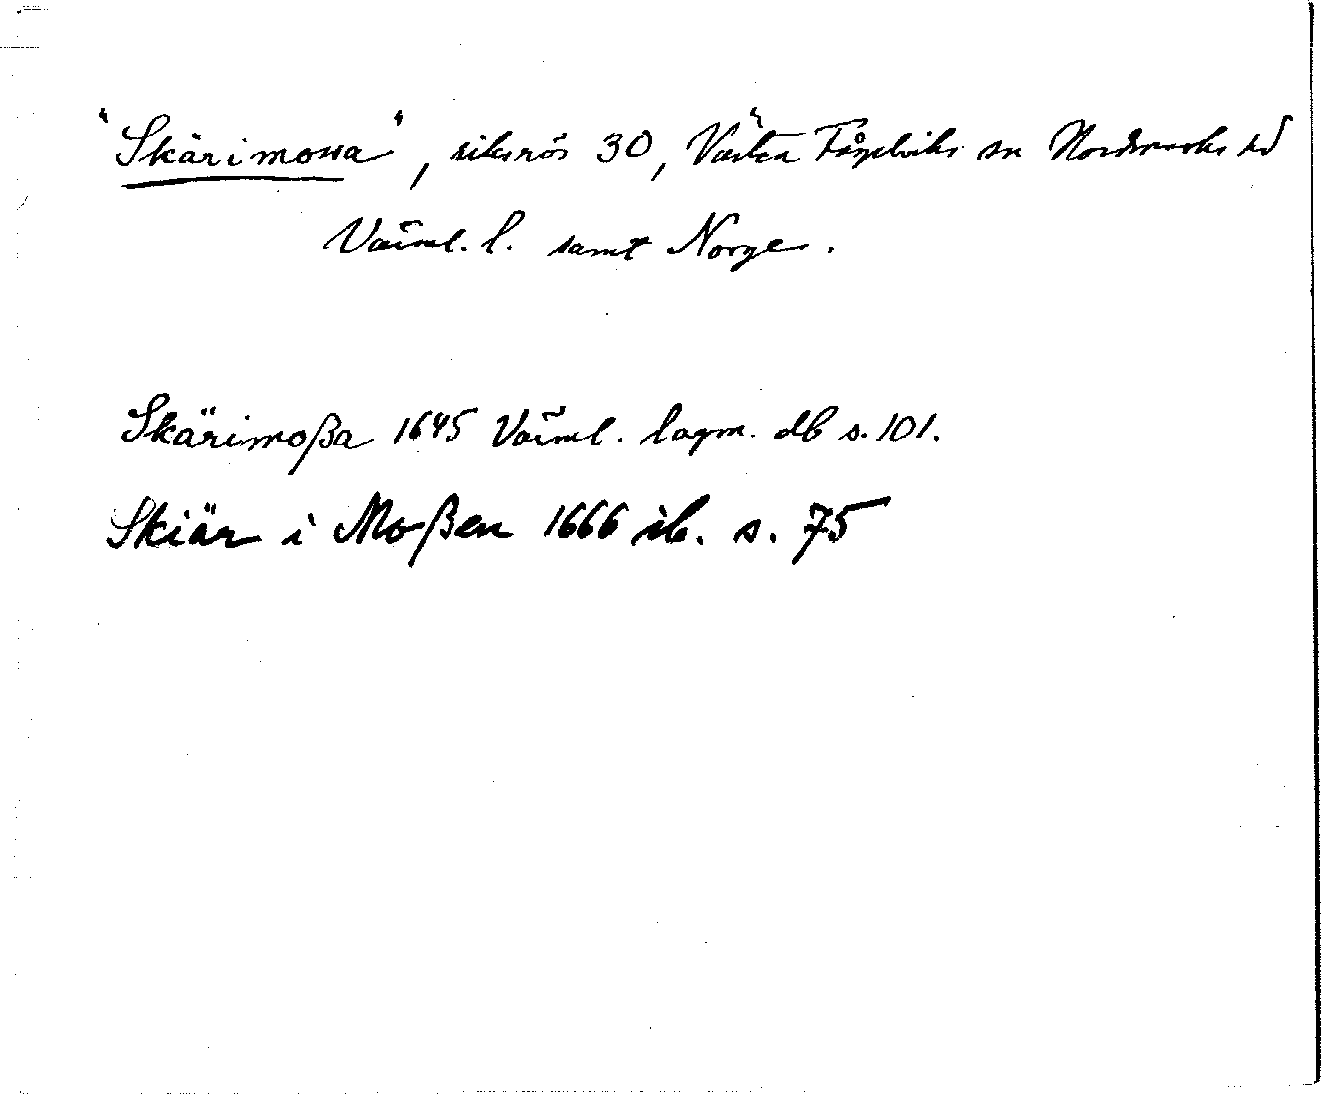 "Skärimossa", riksrös 30, Västra Fågelviks sn Nordmarks hd
Värml. l. samt Norge.
Skärimoßa 1645 Värml. lagm. db s. 101.
Skiär i Moßen 1666 ib. s. 75